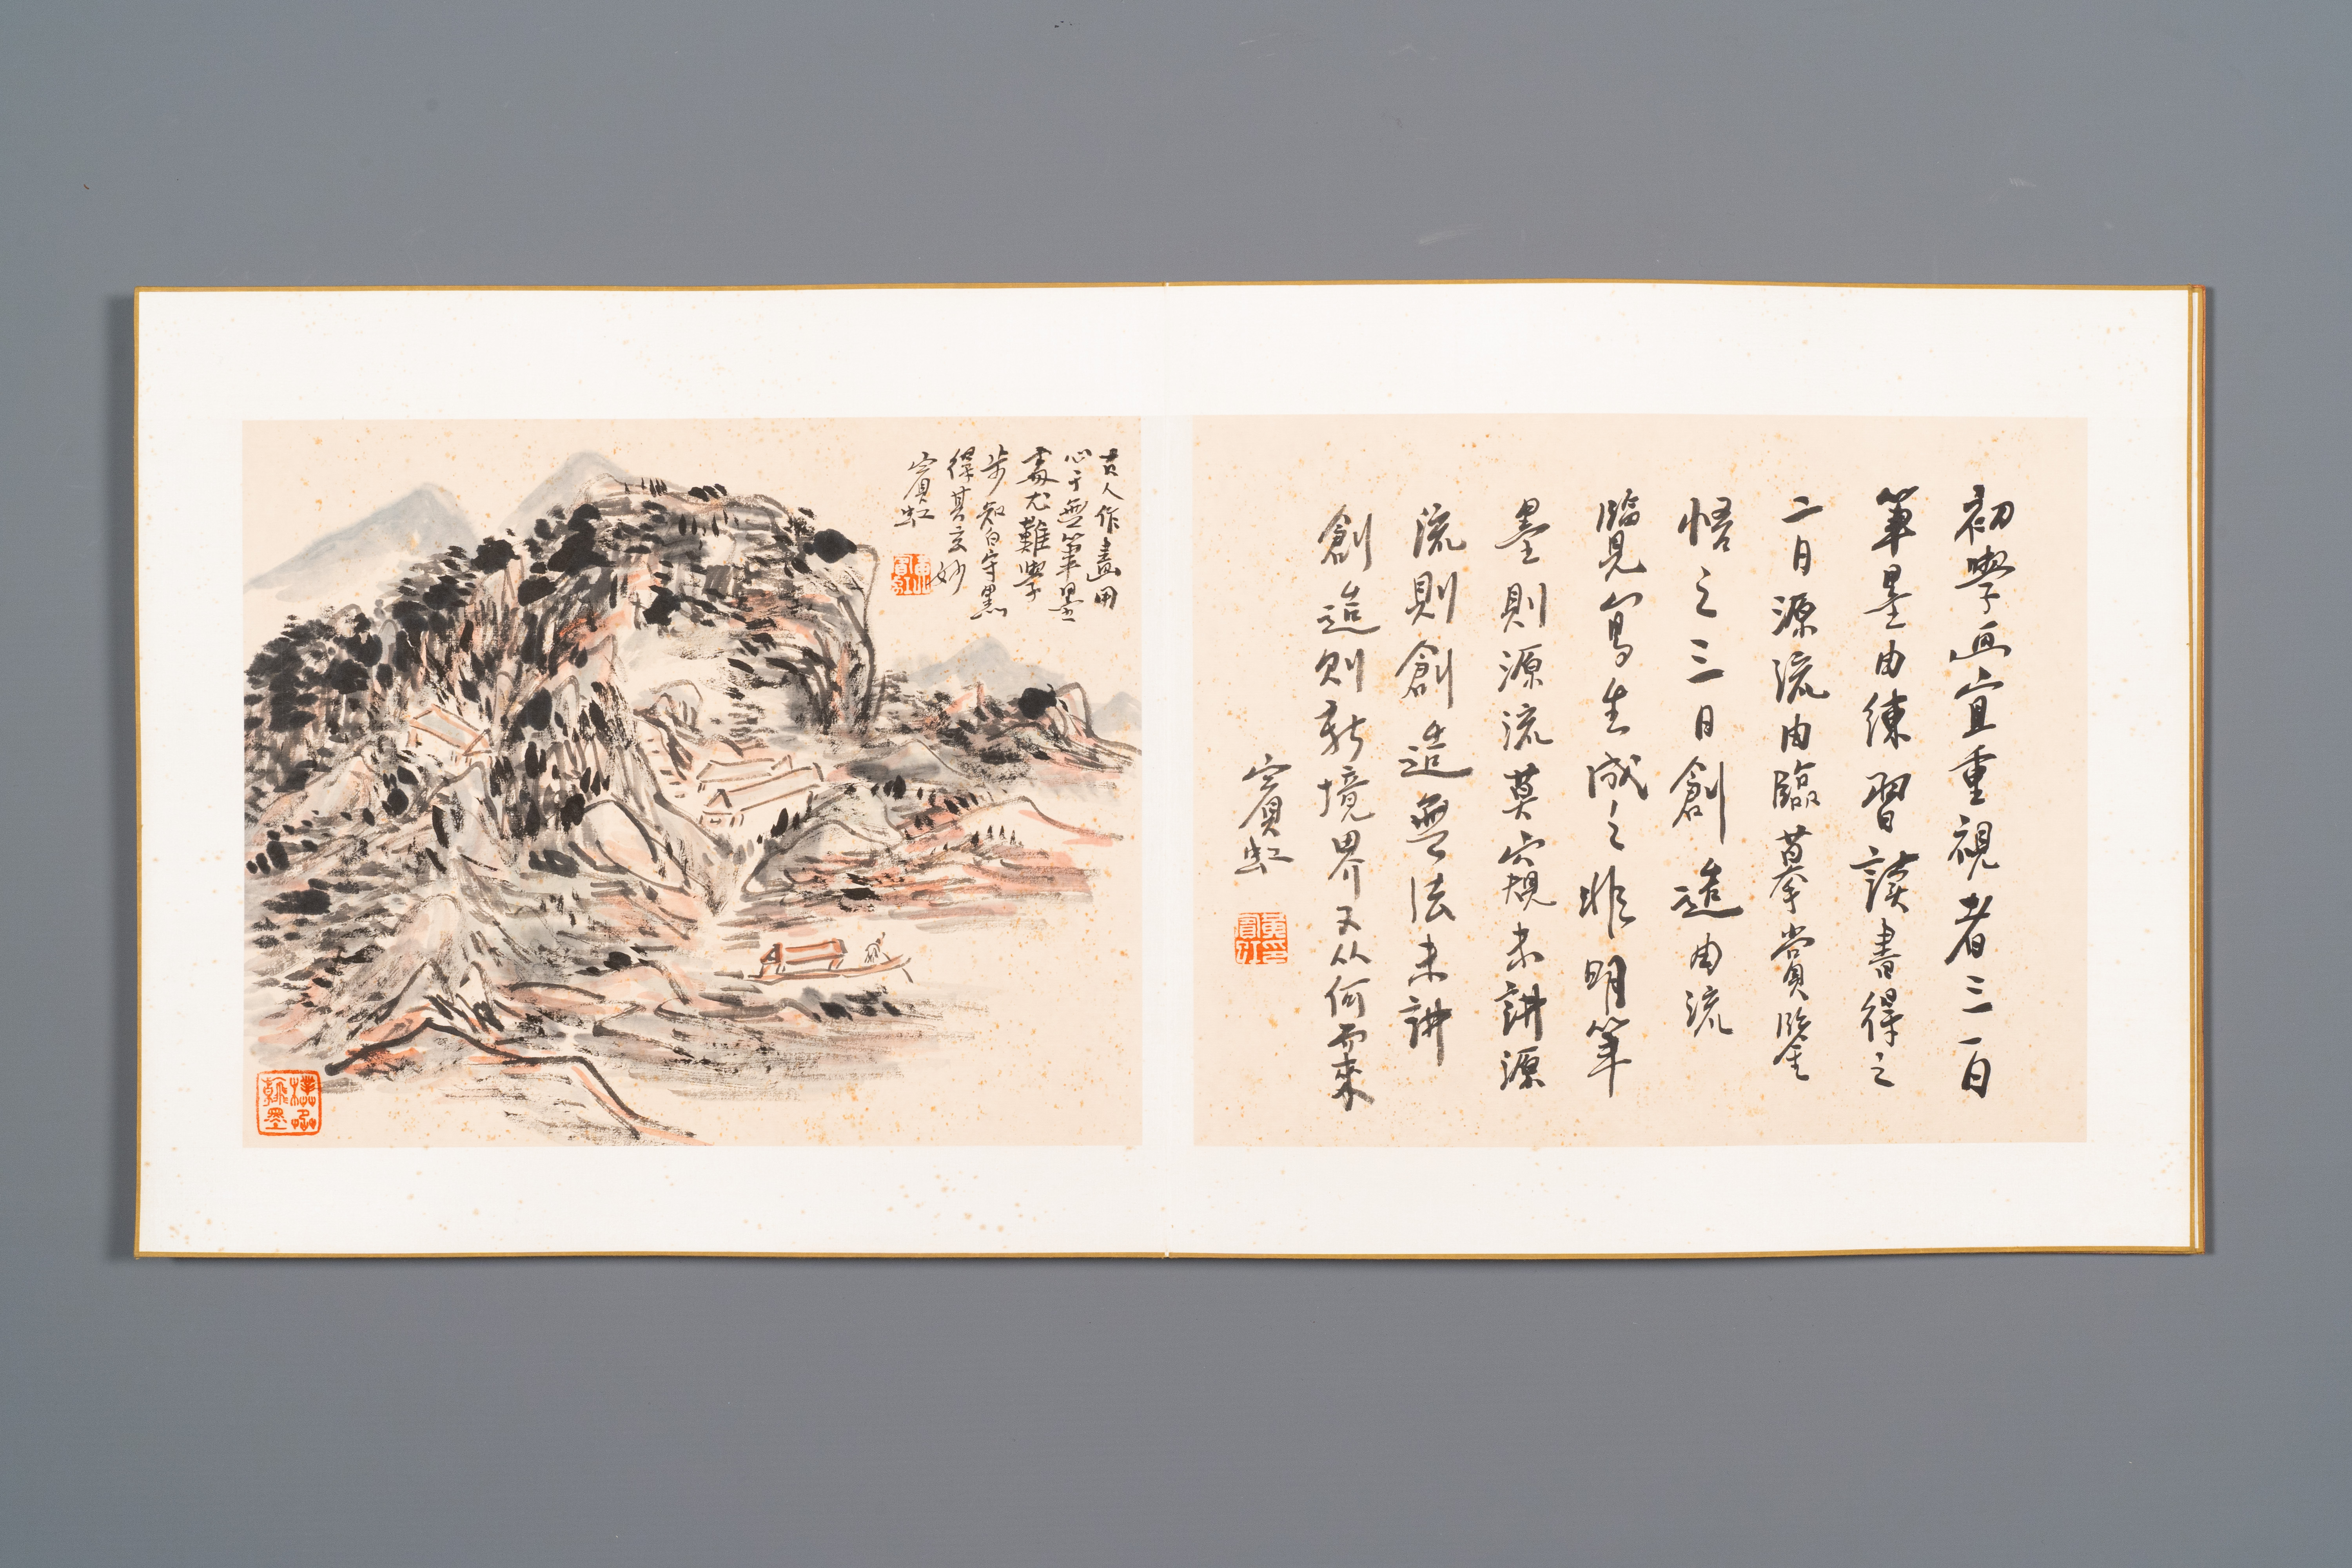 初學画宜重視者三一曰
筆墨由練習讀書得之
二曰源流由臨摹賞鑒
悟之三曰創造由流
臨見寫生成之非明筆
墨則源流莫窺未講源
流則創造無法未講
創造則新境界又从何而來
賓虹
黃賓虹
古人作畫用
心于無筆墨
處尤難學
步知白守黑
得其玄妙
賓虹
翰墨